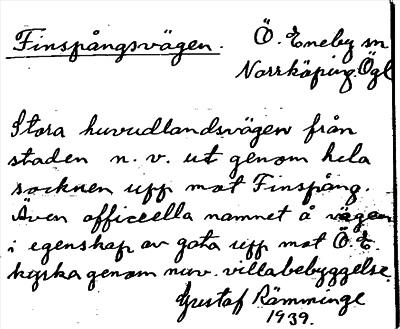 Finspångsvägen. Ö. Eneby sn
Norrköping. Ögl
Stora huvudlandsvägen från
staden n. v. ut genom hela
socknen upp mot Finspång.
Även officiella namnet å vägen
i egenskap av gata upp mot Ö. E.
kyrka genom nuv. villabebyggelse.
Gustaf Rämminge
1939.